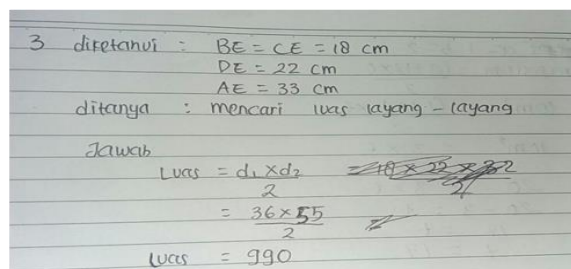 3 diketahui : BE = CE = 18 cm
DE = 22 cm
AE = 33 cm
ditanya : mencari luas layang - layang
Jawab
Luas = d₁ x d₂
2
= 36 x 55
2
Luas = 990